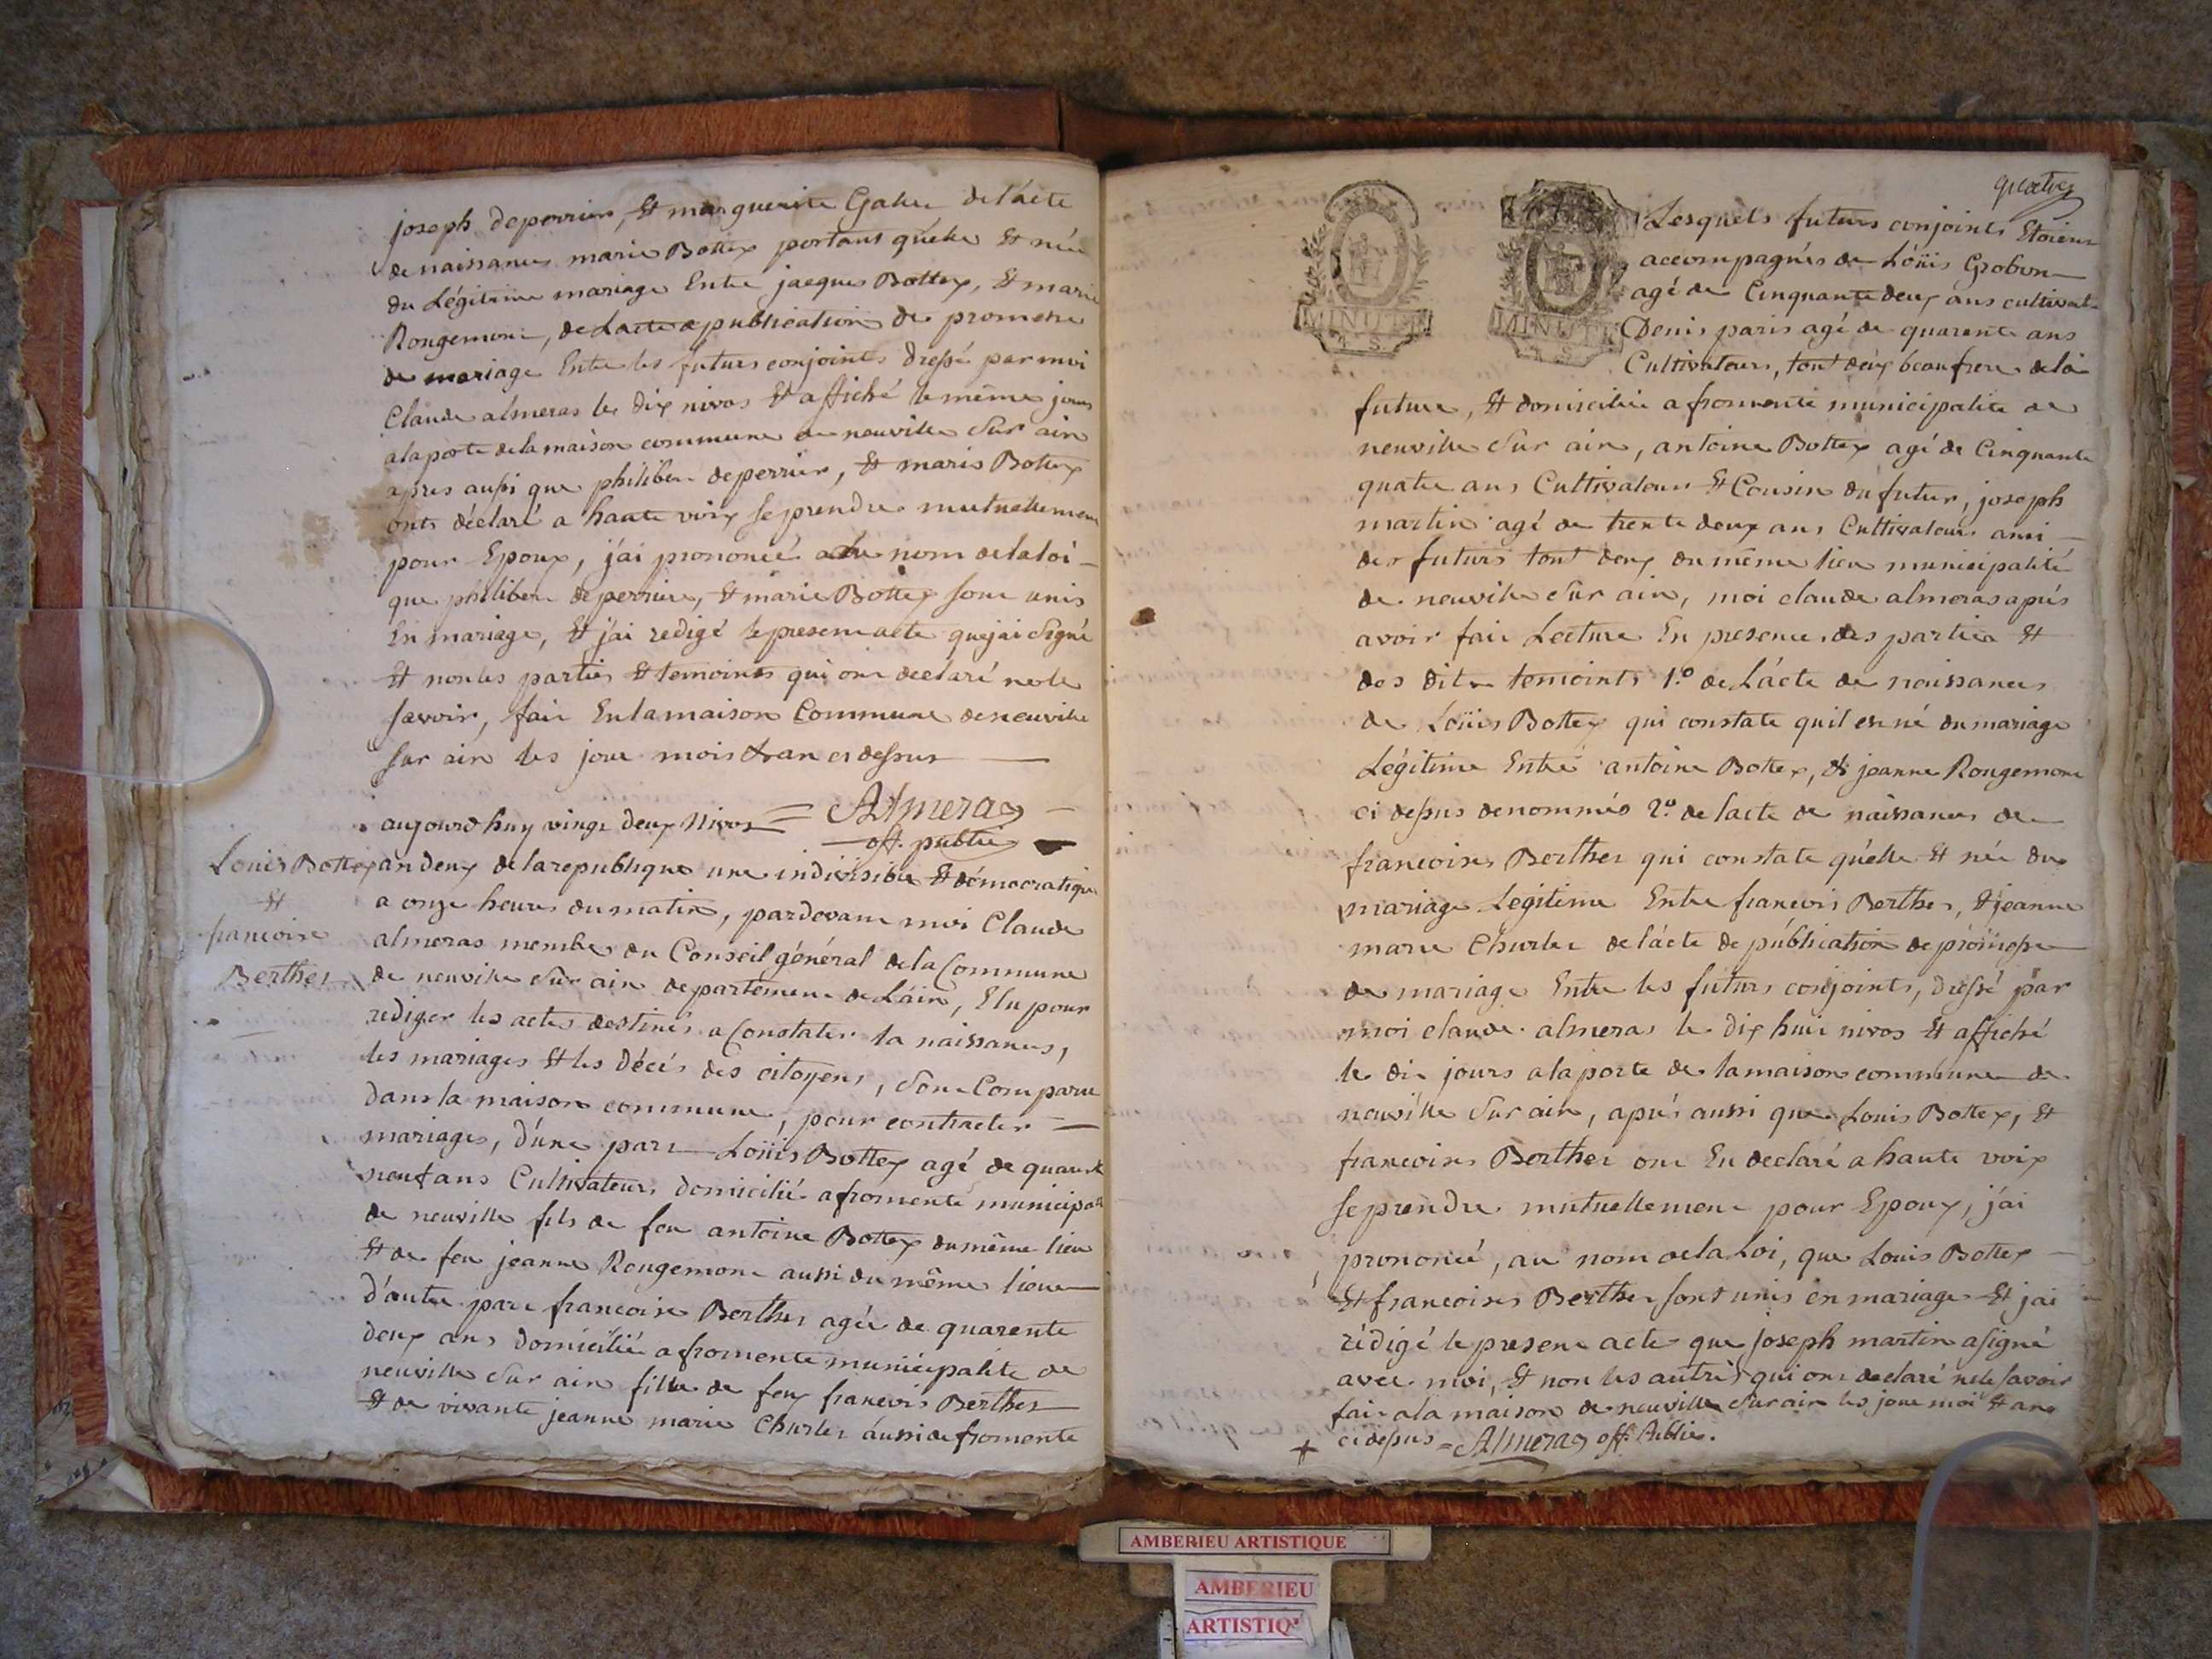 joseph deperrier, Et marguerite Galler de l'acte
de naissance marie Bottex portant quelle Et née
du Légitime mariage Entre jacque Bottex, Et marie
Rougemont, de Lacte de publication de promesse
de mariage Entre les futurs conjoints dressé par moi
Claude almeras le dix nivos Et affiché le même jour
a la porte de la maison commune de neuville Sur ain
apres aussi que philibert deperrier, Et marie Bottex
onts déclaré a haute voix se prendre mutuellement
pour Epoux, j'ai prononcé au nom de la loi
que philibert deperrier, Et marie Bottex sont unis
En mariage, Et j'ai redigé le present acte que jai Signé
Et non les parties Et temoints qui ont déclaré ne le
savoir, fait En la maison Commune de neuville
sur ain les jour mois & an ci dessus
= Almeras
off. public
aujourdhuy vingt deux Nivos
Louis Bottex
Et
francoise
Berthet
an deux de la republique une indivisible Et démocratique
a onze heures du matin, pardevant moi Claude
almeras membre du Conseil général de la Commune
de neuville Sur ain departement de L'ain, Elu pour
rediger les actes destinés a Constater la naissances,
les mariages Et les Décés des citoyens, Sont Comparu
dans la maison commune, pour contracter
mariages, d'une part Loüis Bottex agé de quarante
neuf ans Cultivateur, domicilié a fromente municipalité
de neuville fils de feu antoine Bottex du même lieu
Et de feu jeanne Rougemont aussi du même lieu
d'autre part francoise Berthet agée de quarente
deux ans domiciliée a fromente municipalite de
neuville Sur ain fille de feu francois Berthet
Et de vivante jeanne marie Churlet aussi de fromente
quatre
MINUTE
4 S.
MINUTE
4 S.
Lesquels futurs conjoints Etoient
accompagnés de Loüis Grobon
agé de Cinquante deux ans cultivat.
Denis paris agé de quarente ans
Cultivateurs, tout deux beaufrere de la
future, Et domicilié a fromente municipalite de
neuville Sur ain, antoine Bottex agé de Cinquante
quatre ans Cultivateur Et Cousin du futur, joseph
martin agé de trente deux ans Cultivateur ami
des futurs tout deux du même lieu municipalité
de neuville Sur ain, moi claude almeras aprés
avoir fait Lecture En presence des parties Et
des dits temoints 1.º de L'acte de naissances
de Loüis Bottex qui constate quil est né du mariage
Légitime Entré antoine Bottex, & jeanne Rougemont
ci dessus denommés 2.º de lacte de naissances de
francoises Berthet qui constate quelle Et née du
mariage Legitime Entre francois Berthet, Et jeanne
marie Churlet de l'acte de publication de promesse
de mariage Entre les futurs conjoints, dressé par
moi claude almeras le dix huit nivos Et affiché
le dit jours a la porte de la maison commune de
neuville Sur ain, aprés aussi que Louis Bottex, Et
francoises Berthet ont En declaré a haute voix
se prendre mutuellement pour Epoux, j'ai
prononcé, au nom de la Loi, que Louis Bottex
Et francoises Berthet sont unis en mariage Et jai
rédigé le present acte que joseph martin a signé
avec moi, Et non les autres qui ont declaré ne le savoir
fait a la maison de neuville Sur ain les jour moi Et an
ci dessus = Almeras off. Public.
AMBERIEU ARTISTIQUE
AMBERIEU
ARTISTIQ